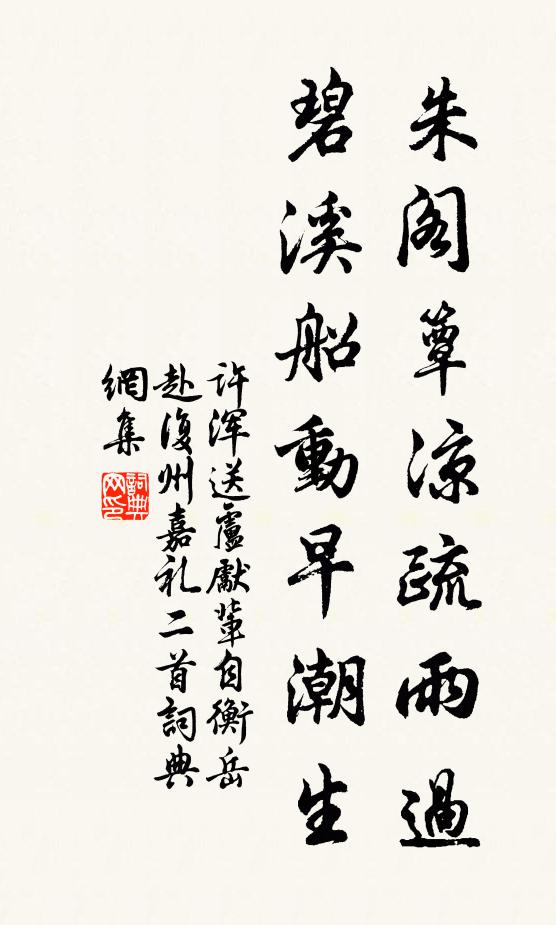 朱阁簟涼疏雨過
碧溪船動早潮生
许浑送盧獻輩自衡岳
赴復州嘉礼二首詞典
網集
詞典网印